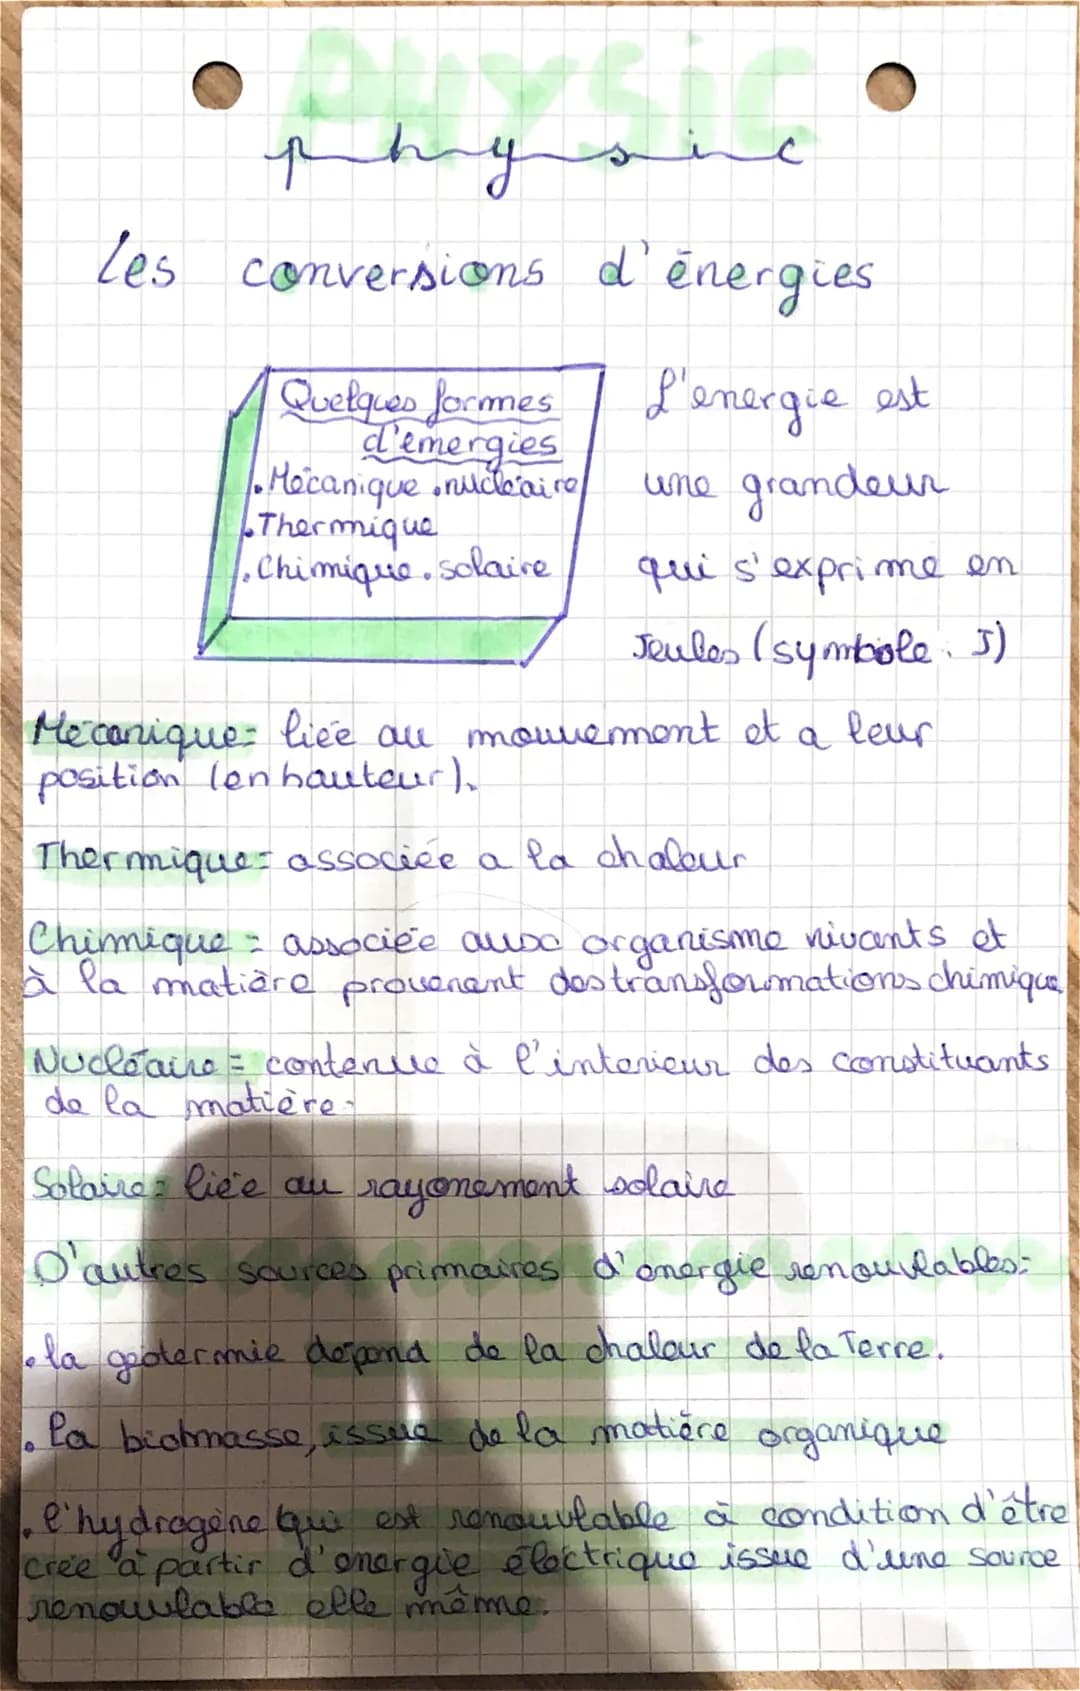 PHYSIC
physic
Les conversions d'énergies
Quelques formes
d'énergies
. Mécanique . nucléaire
. Thermique
. Chimique . solaire
L'energie est
une grandeur
qui s'exprime en
Joules (symbole : J)
Mécanique = liée au mouvement et a leur
position (en hauteur).
Thermique = associée a la chaleur
Chimique = associée aux organisme vivants et
à la matière provenant des transformations chimique
Nucléaire = contenue à l'interieur des constituants
de la matière.
Solaire = liée au rayonement solaire
D'autres sources primaires d'énergie renouvlables :
. la geotermie dépend de la chaleur de la Terre.
. la biobmasse, issue de la matière organique
. l'hydrogène qui est renouvlable à condition d'être
crée à partir d'énergie électrique issue d'une source
renouvlable elle même.